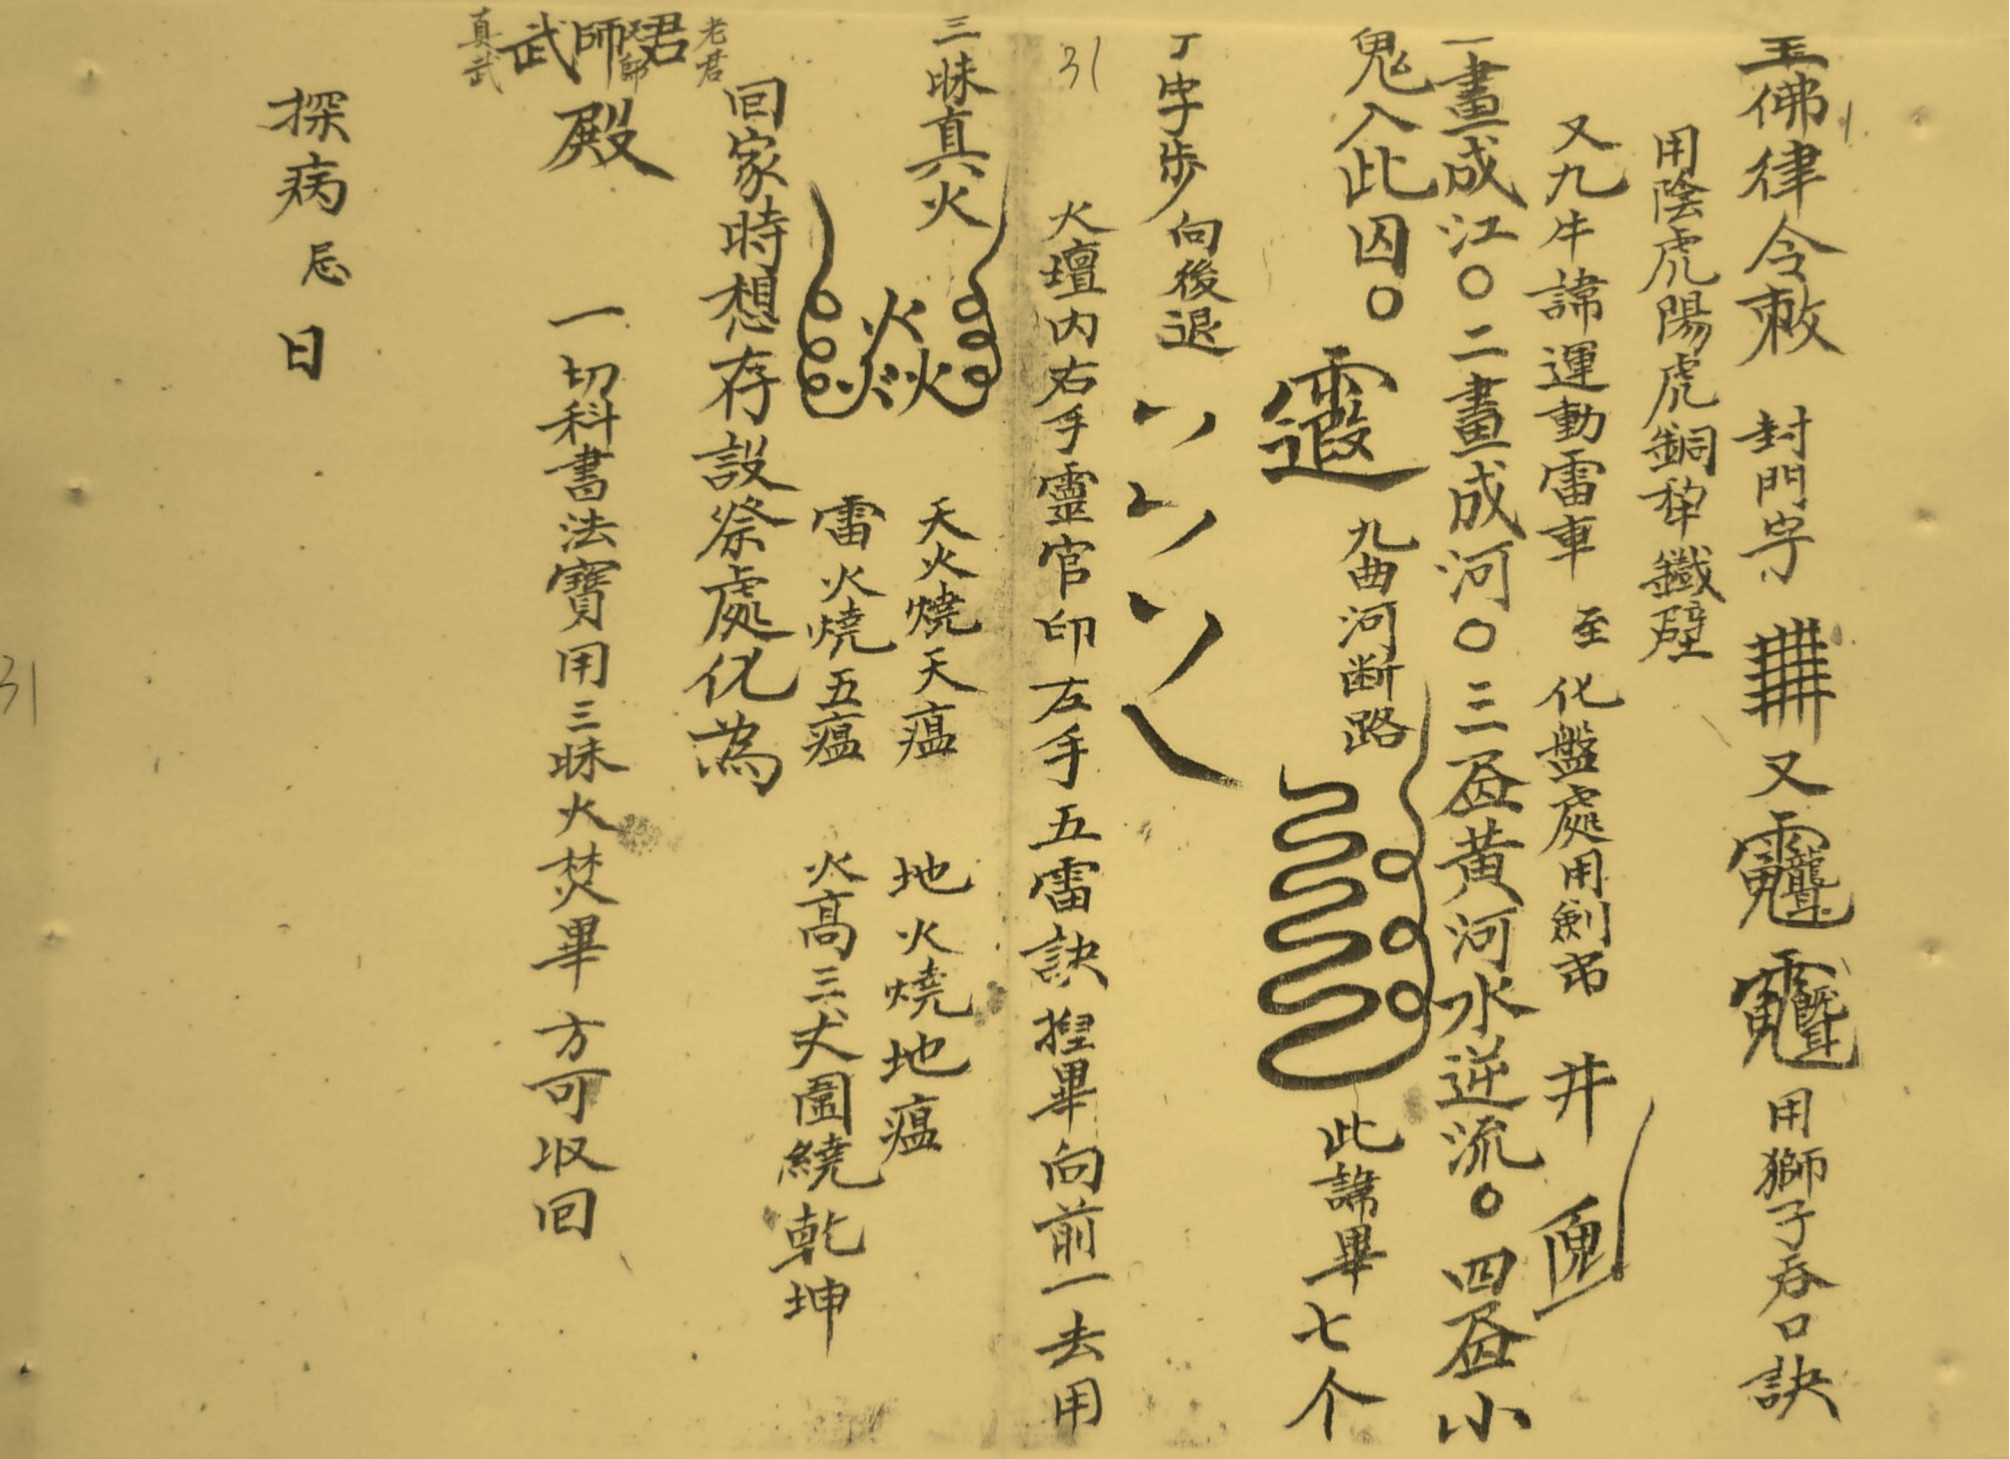 玉佛律令敕 封門字 又 用獅子吞口訣
用陰虎陽虎銅 鐵壁
又九牛諱運動雷車 至 化盤處用劍 井
一畫成江〇二畫成河〇三 黃河水逆流〇四 小
鬼入此囚〇 九曲河断路 此諱畢七个
丁字步向後退
31
火壇内右手靈官印左手五雷訣揑畢向前一去用
三昧真火 天火燒天瘟 地火燒地瘟
雷火燒五瘟 火高三丈圍繞乾坤
回家時想存設祭處化為
老君
君師武殿 一切科書法寶用三昧火焚畢方可收回
真武
探病忌日
31